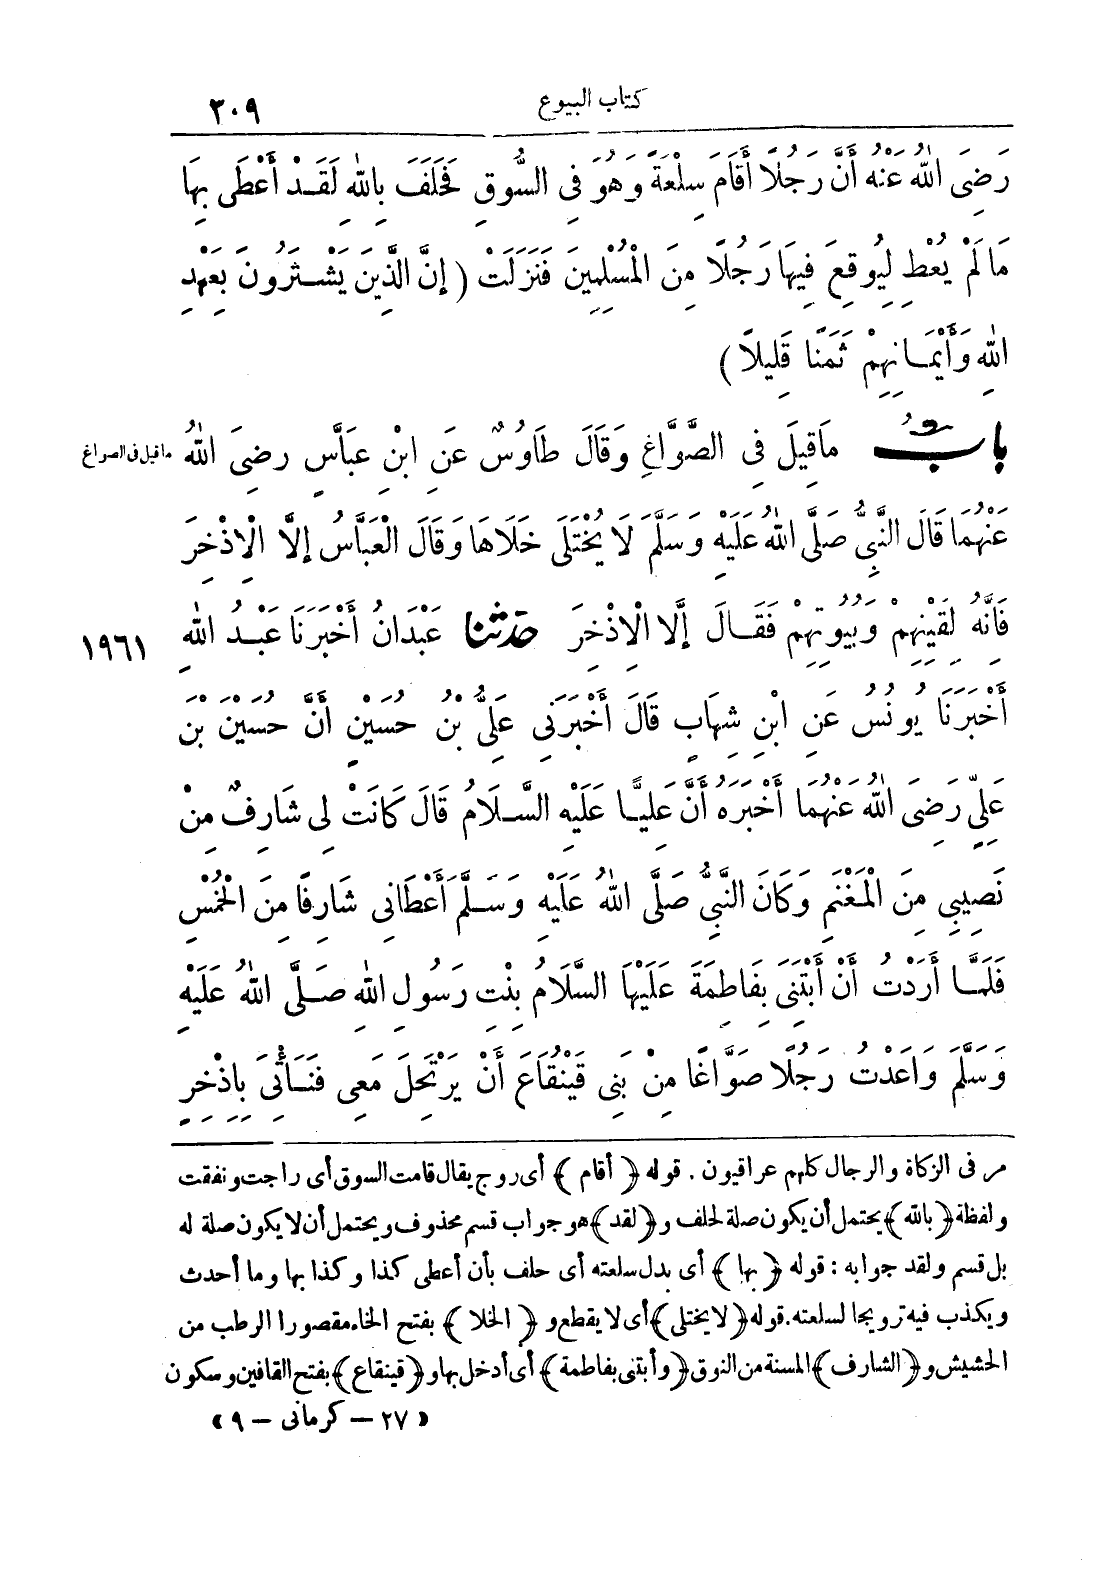 كتاب البيوع ٣٠٩
رَضِىَ اللّٰهُ عَنْهُ أَنَّ رَجُلًا أَقَامَ سِلْعَةً وَهُوَ فِى السُّوقِ فَحَلَفَ بِاللّٰهِ لَقَدْ أَعْطَى بِهَا
مَا لَمْ يُعْطِ لِيُوقِعَ فِيهَا رَجُلًا مِنَ الْمُسْلِمِينَ فَنَزَلَتْ ( إِنَّ الَّذِينَ يَشْتَرُونَ بِعَهْدِ
اللّٰهِ وَأَيْمَانِهِمْ ثَمَنًا قَلِيلًا )
بَابُ مَاقِيلَ فِى الصَّوَّاغِ وَقَالَ طَاوُسٌ عَنِ ابْنِ عَبَّاسٍ رضِىَ اللّٰهُ
ماقيل فى الصواغ
عَنْهُمَا قَالَ النَّبِىُّ صَلَّى اللّٰهُ عَلَيْهِ وَسَلَّمَ لَا يُخْتَلَى خَلَاهَا وَقَالَ الْعَبَّاسُ إِلَّا الْإِذْخِرَ
فَانَّهُ لِقَيْنِهِمْ وَبُيُوتِهِمْ فَقَالَ إِلَّا الْإِذْخِرَ حدثنا عَبْدَانُ أَخْبَرَنَا عَبْدُ اللّٰهِ
١٩٦١
أَخْبَرَنَا يُونُسُ عَنِ ابْنِ شِهَابٍ قَالَ أَخْبَرَنِى عَلِىُّ بْنُ حُسَيْنٍ أَنَّ حُسَيْنَ بْنَ
عَلِىٍّ رَضِىَ اللّٰهُ عَنْهُمَا أَخْبَرَهُ أَنَّ عَلِيًّا عَلَيْهِ السَّلَامُ قَالَ كَانَتْ لِى شَارِفٌ مِنْ
نَصِيبِى مِنَ الْمَغْنَمِ وَكَانَ النَّبِىُّ صَلَّى اللّٰهُ عَلَيْهِ وَسَلَّمَ أَعْطَانِى شَارِفًا مِنَ الْخُمْسِ
فَلَمَّا أَرَدْتُ أَنْ أَبْتَنِىَ بِفَاطِمَةَ عَلَيْهَا السَّلَامُ بِنْتِ رَسُولِ اللّٰهِ صَلَّى اللّٰهُ عَلَيْهِ
وَسَلَّمَ وَاعَدْتُ رَجُلًا صَوَّاغًا مِنْ بَنِى قَيْنُقَاعَ أَنْ يَرْتَحِلَ مَعِى فَنَأْتِىَ بِإِذْخِرٍ
مر فى الزكاة والرجال كلهم عراقيون . قوله ﴿ أقام ﴾ أى روج يقال قامت السوق أى راجت ونفقت
ولفظة ﴿ بالله ﴾ يحتمل أن يكون صلة لحلف و ﴿ لقد ﴾ هو جواب قسم محذوف ويحتمل أن لا يكون صلة له
بل قسم ولقد جوابه : قوله ﴿ بها ﴾ أى بدل سلعته أى حلف بأن أعطى كذا وكذا بها وما أحدث
ويكذب فيه ترويجا لسلعته . قوله ﴿ لا يختلى ﴾ أى لا يقطع و ﴿ الخلا ﴾ بفتح الخاء مقصورا الرطب من
الحشيش و ﴿ الشارف ﴾ المسنة من النوق ﴿ وأبتنى بفاطمة ﴾ أى أدخل بها و ﴿ قينقاع ﴾ بفتح القافين وسكون
« ٢٧ – كرمانى – ٩ »